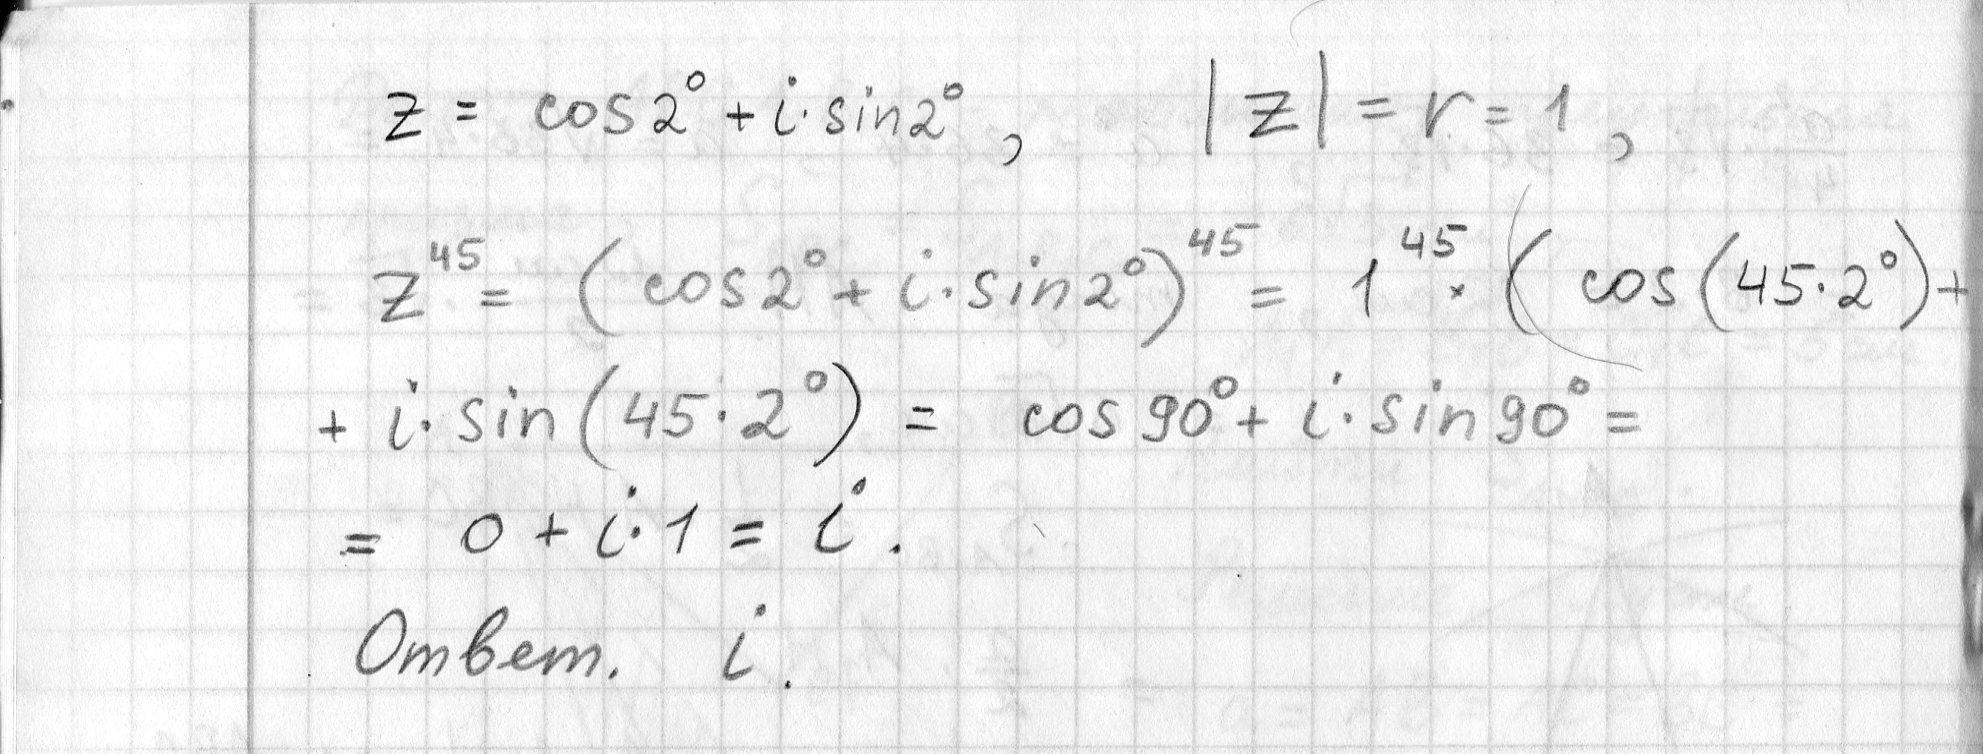 z = cos2° + i·sin2°, |z| = r = 1,
z⁴⁵ = (cos2° + i·sin2°)⁴⁵ = 1⁴⁵ · (cos(45·2°) +
+ i·sin(45·2°) = cos90° + i·sin90° =
= 0 + i·1 = i.
Ответ. i.